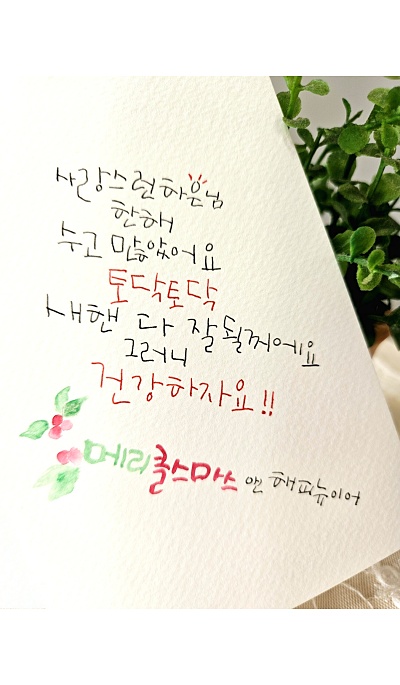 사랑스런하은님
한해
수고 많았어요
토닥토닥
새핸 다 잘될꺼에요
그러니
건강하자요!!
메리쿨스마스 앤 해피뉴이어